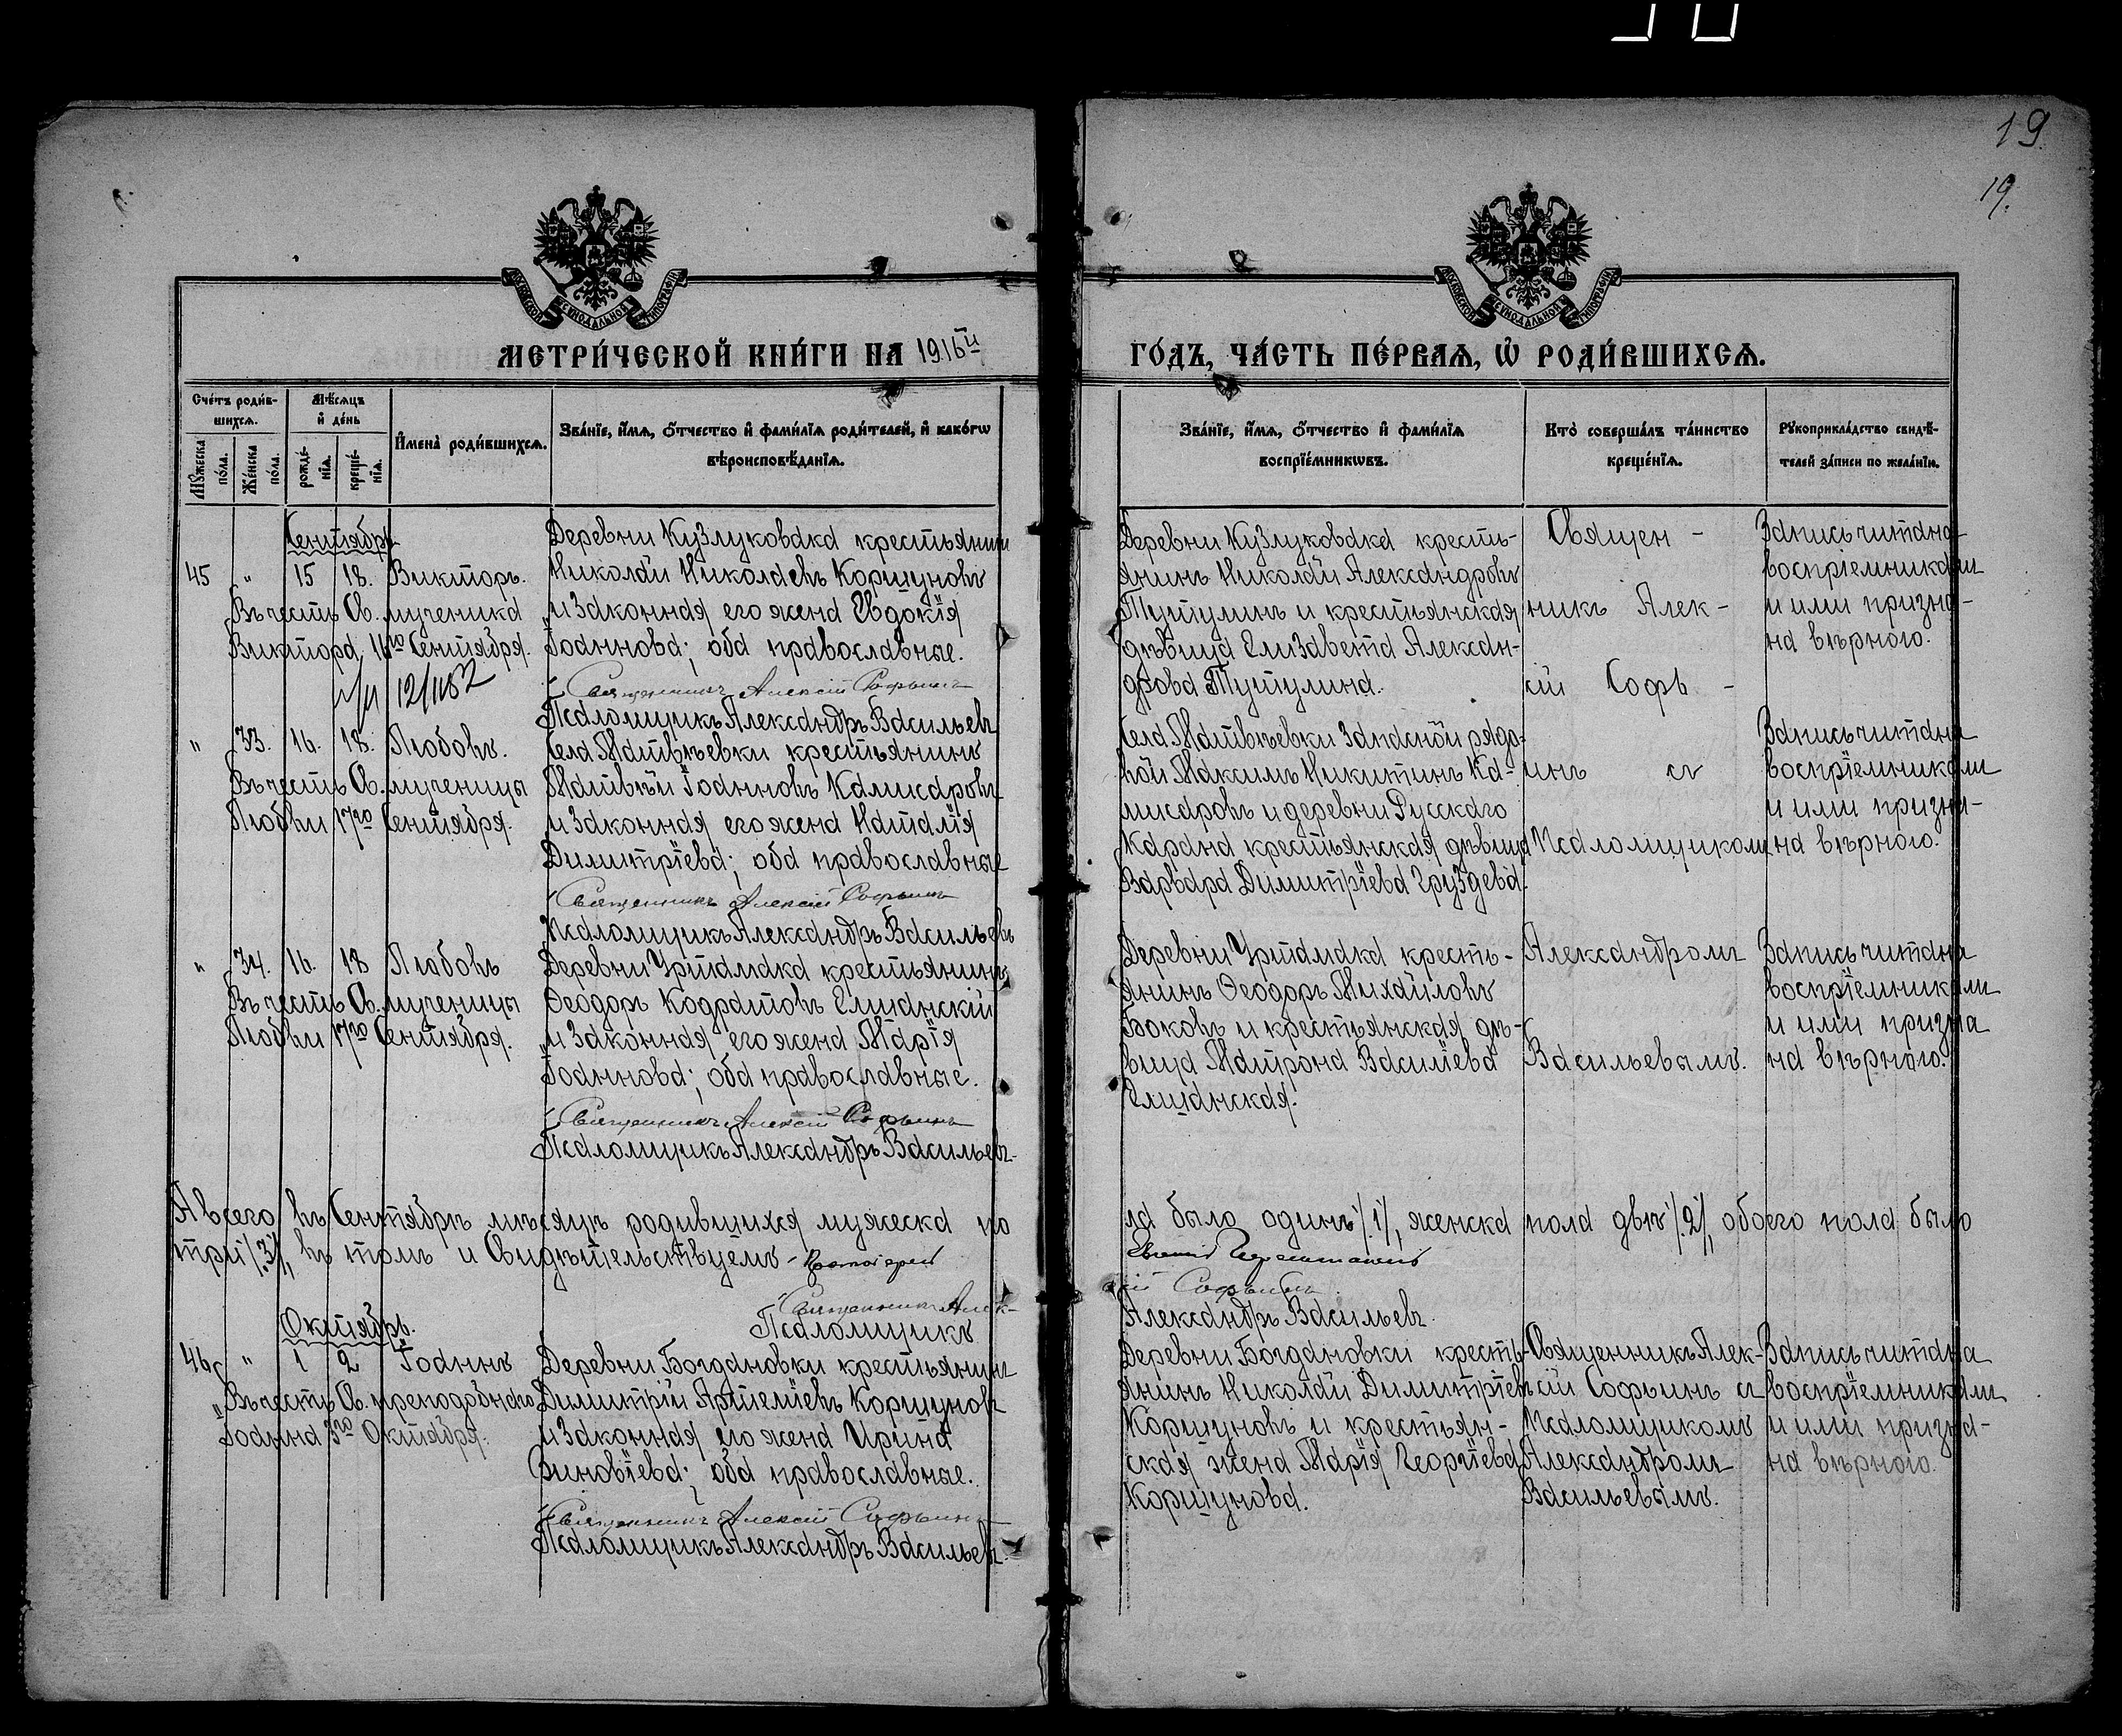 19
19.
МОСКОВСКОЙ СУНОДАЛЬНОЙ ТИПОГРАФІИ
МОСКОВСКОЙ СУНОДАЛЬНОЙ ТИПОГРАФІИ
МЕТРИ́ЧЕСКОЙ КНИ́ГИ НА 1916й
ГО́ДЪ, ЧА́СТЬ ПЕ́РВАѦ, Ѡ҆ РОДИ́ВШИХСѦ.
Сче́тъ роди́в-
шихсѧ.
Мѣ́сѧцъ
и҆ де́нь
Мꙋ́жеска
по́ла.
Же́нска
по́ла.
рожде́-
нїѧ.
креще́-
нїѧ.
И҆мена̀ роди́вшихсѧ.
Зва́нїе, и҆́мѧ, ѻ҆́тчество и҆ фами́лїѧ роди́телей, и҆ како́гѡ
вѣроисповѣ́данїѧ.
Зва́нїе, и҆́мѧ, ѻ҆́тчество и҆ фами́лїѧ
воспрїе́мникѡвъ.
Кто̀ соверша́лъ та́инство
креще́нїѧ.
Рꙋкоприкла́дство свидѣ́-
телей за́писи по жела́нїю.
Сентябрь
45 " 15 18. Викторъ.
Въ честь Св. мученика
Виктора, 16го Сентября.
12/1182
Деревни Кузлуковака крестьянинъ
Николай Николаевъ Коршуновъ
и законная его жена Евдокія
Іоаннова; оба православные.
Священникъ Алексій Софьинъ
Псаломщикъ Александръ Васильевъ
Деревни Кузлуковака кресть-
янинъ Николай Александровъ
Тутулинъ и крестьянская
дѣвица Елизавета Алексан-
дрова Тутулина.
Священ-
никъ Алек-
сій Софь-
Запись читана
воспріемниками
и ими призна-
на вѣрною.
" 33. 16. 18. Любовь.
Въ честь Св. мученицы
Любви 17го Сентября.
Села Матвѣевки крестьянинъ
Матвѣй Іоанновъ Камисаровъ
и законная его жена Наталія
Димитріева; оба православные
Священникъ Алексій Софьинъ
Псаломщикъ Александръ Васильевъ
Села Матвѣевки запасной рядо-
вой Максимъ Никитинъ Ка-
мисаровъ и деревни Русскаго
Карана крестьянская дѣвица
Варвара Димитріева Груздева.
инъ съ
Псаломщикомъ
Запись читана
воспріемниками
и ими призна-
на вѣрною.
" 34. 16. 18 Любовь
Въ честь Св. мученицы
Любви 17го Сентября.
Деревни Уртамака крестьянинъ
Ѳеодоръ Кодратовъ Елшанскій
и законная его жена Марія
Іоаннова; оба православные.
Священникъ Алексій Софьинъ
Псаломщикъ Александръ Васильевъ.
Деревни Уртамака кресть-
янинъ Ѳеодоръ Михайловъ
Боковъ и крестьянская дѣ-
вица Матрона Василіева
Елшанская.
Александромъ
Васильевымъ.
Запись читана
воспріемниками
и ими призна
на вѣрною.
А всего въ Сентябрѣ мѣсяцѣ родившихся мужеска по
ла было одинъ /1/, женска пола двѣ /2/, обоего пола было
три /3/, въ томъ и свидѣтельствуемъ - Протоіерей
Священникъ Алек-
сій Софьинъ.
Псаломщикъ
Александръ Васильевъ.
Октябрь.
46 " 1 2 Іоаннъ
Въ честь Св. преподобнаго
Іоанна 3го Октября.
Деревни Богдановки крестьянинъ
Димитрій Артеміевъ Коршуновъ
и законная его жена Ирина
Зиновіева; оба православные.
Священникъ Алексій Софьинъ
Псаломщикъ Александръ Васильевъ.
Деревни Богдановки кресть-
янинъ Николай Димитріевъ
Коршуновъ и крестьян-
ская жена Марія Георгіева
Коршунова.
Священникъ Алек-
сій Софьинъ съ
Псаломщикомъ
Александромъ
Васильевымъ.
Запись читана
воспріемниками
и ими призна-
на вѣрною.